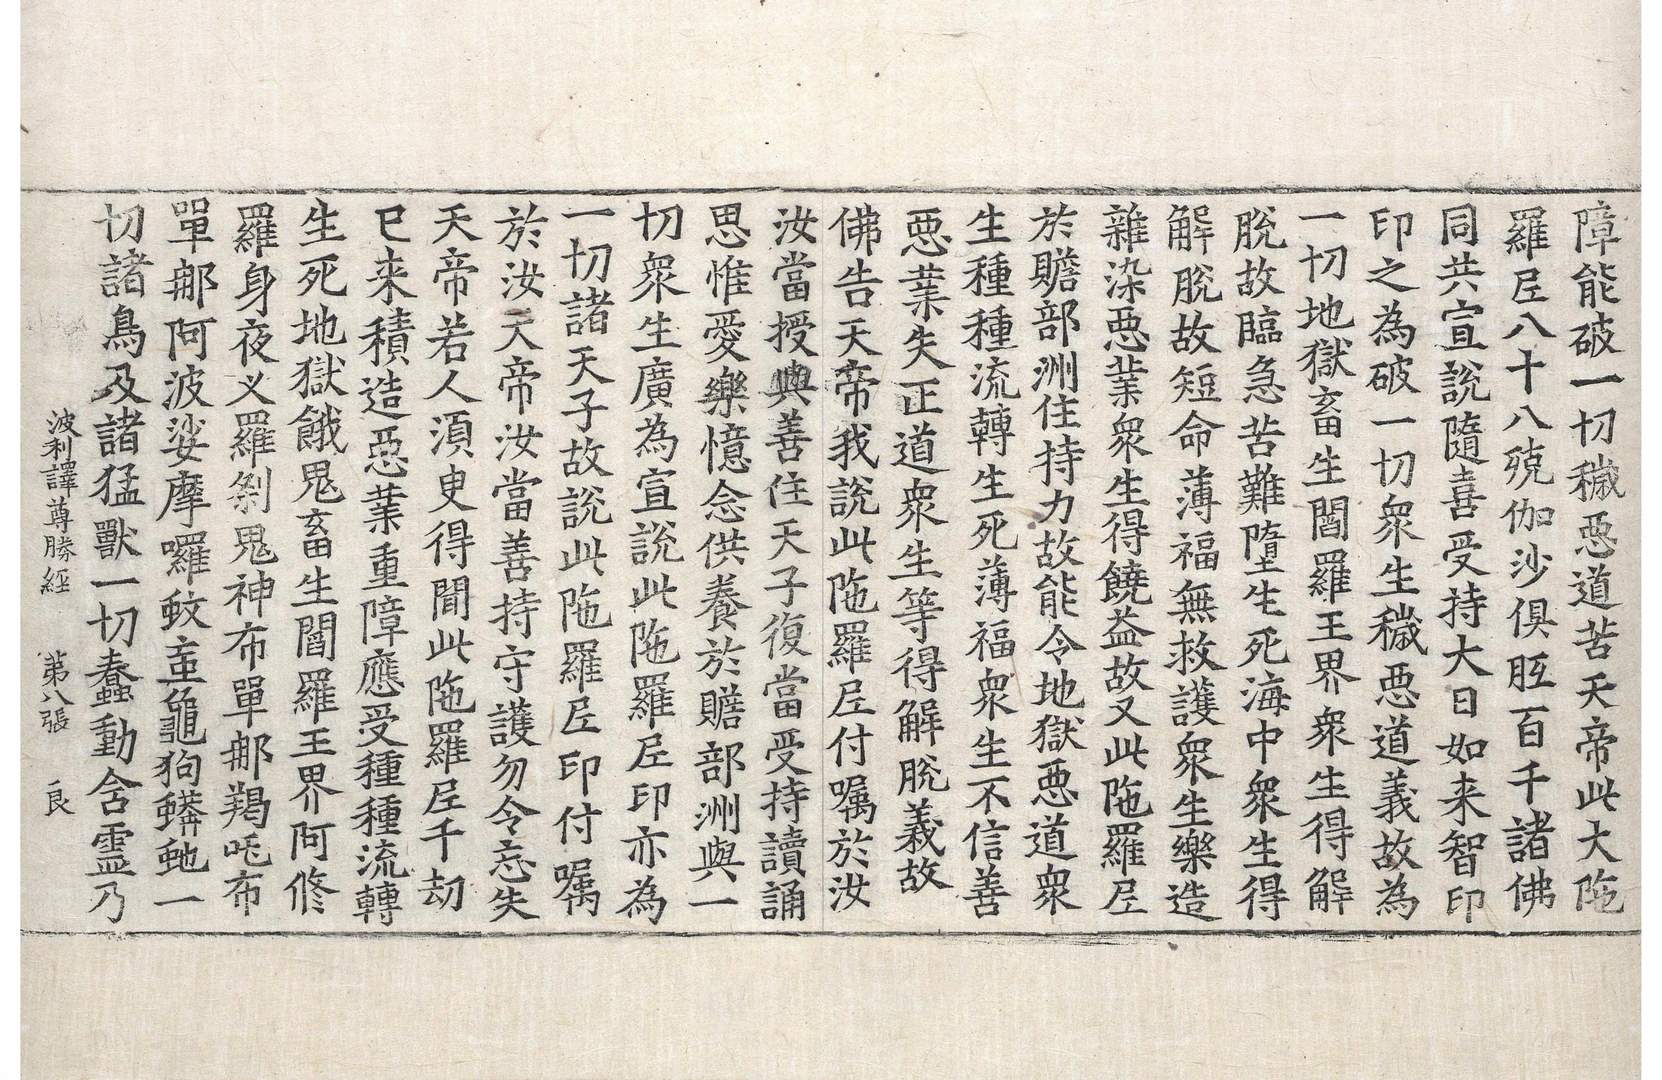 障能破一切穢惡道苦天帝此大陁
羅尼八十八殑伽沙俱胝百千諸佛
同共宣說隨喜受持大日如来智印
印之為破一切衆生穢惡道義故為
一切地獄畜生閻羅王界衆生得解
脫故臨急苦難墮生死海中衆生得
解脫故短命薄福無救護衆生樂造
雜染惡業衆生得饒益故又此陁羅尼
於贍部洲住持力故能令地獄惡道衆
生種種流轉生死薄福衆生不信善
惡業失正道衆生等得解脫義故
佛告天帝我說此陁羅尼付囑於汝
汝當授與善住天子復當受持讀誦
思惟愛樂憶念供養於贍部洲與一
切衆生廣為宣說此陁羅尼印亦為
一切諸天子故說此陁羅尼印付囑
於汝天帝汝當善持守護勿令忘失
天帝若人湏臾得聞此陁羅尼千劫
已来積造惡業重障應受種種流轉
生死地獄餓鬼畜生閻羅王界阿修
羅身夜叉羅剎鬼神布單那羯吒布
單那阿波娑摩囉蚊䖟龜狗蟒虵一
切諸鳥及諸猛獸一切蠢動含靈乃
波利譯尊勝經 第八張 良